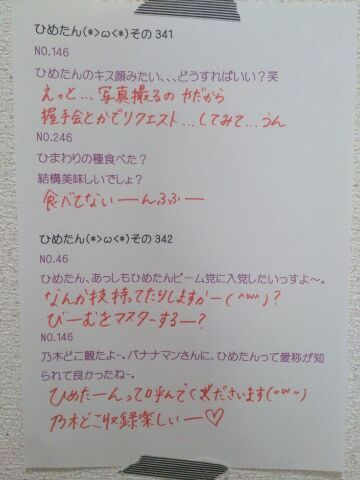 ひめたん(*>ω<*)その341
NO.146
ひめたんのキス顔みたい、、、どうすればいい？笑
えっと…写真撮るのやだから
握手会とかでリクエスト…してみて…うん
NO.246
ひまわりの種食べた？
結構美味しいでしょ？
食べてないーんふふー
ひめたん(*>ω<*)その342
NO.46
ひめたん、あっしもひめたんビーム党に入党したいっすよ〜。
なんか技持ってたりしますかー(^w^)？
びーむをマスターするー？
NO.146
乃木どこ観たよ〜。バナナマンさんに、ひめたんって愛称が知
られて良かったね〜。
ひめたーんって呼んでくださいます("w")
乃木どこ収録楽しいー♡